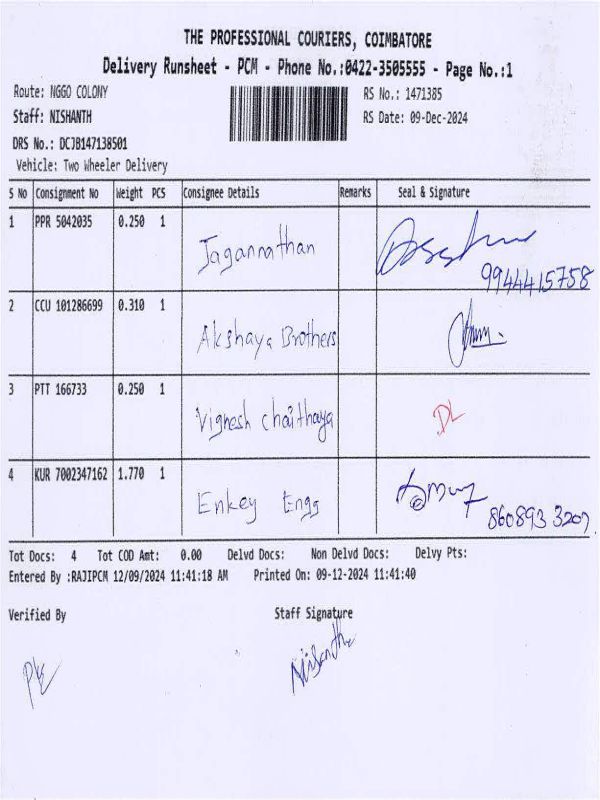 THE PROFESSIONAL COURIERS, COIMBATORE
Delivery Runsheet - PCM - Phone No.:0422-3505555 - Page No.:1
Route: NGGO COLONY RS No.: 1471385
Staff: NISHANTH RS Date: 09-Dec-2024
DRS No.: DCJB147138501
Vehicle: Two Wheeler Delivery
S No Consignment No Weight PCS Consignee Details Remarks Seal & Signature
1 PPR 5042035 0.250 1 Jagannathan
9944415758
2 CCU 101286699 0.310 1 Akshaya Brothers
3 PTT 166733 0.250 1 Vignesh chaithaya DL
4 KUR 7002347162 1.770 1 Enkey Engg
860893 3207
Tot Docs: 4 Tot COD Amt: 0.00 Delvd Docs: Non Delvd Docs: Delvy Pts:
Entered By :RAJIPCM 12/09/2024 11:41:18 AM Printed On: 09-12-2024 11:41:40
Verified By Staff Signature
Nishanth